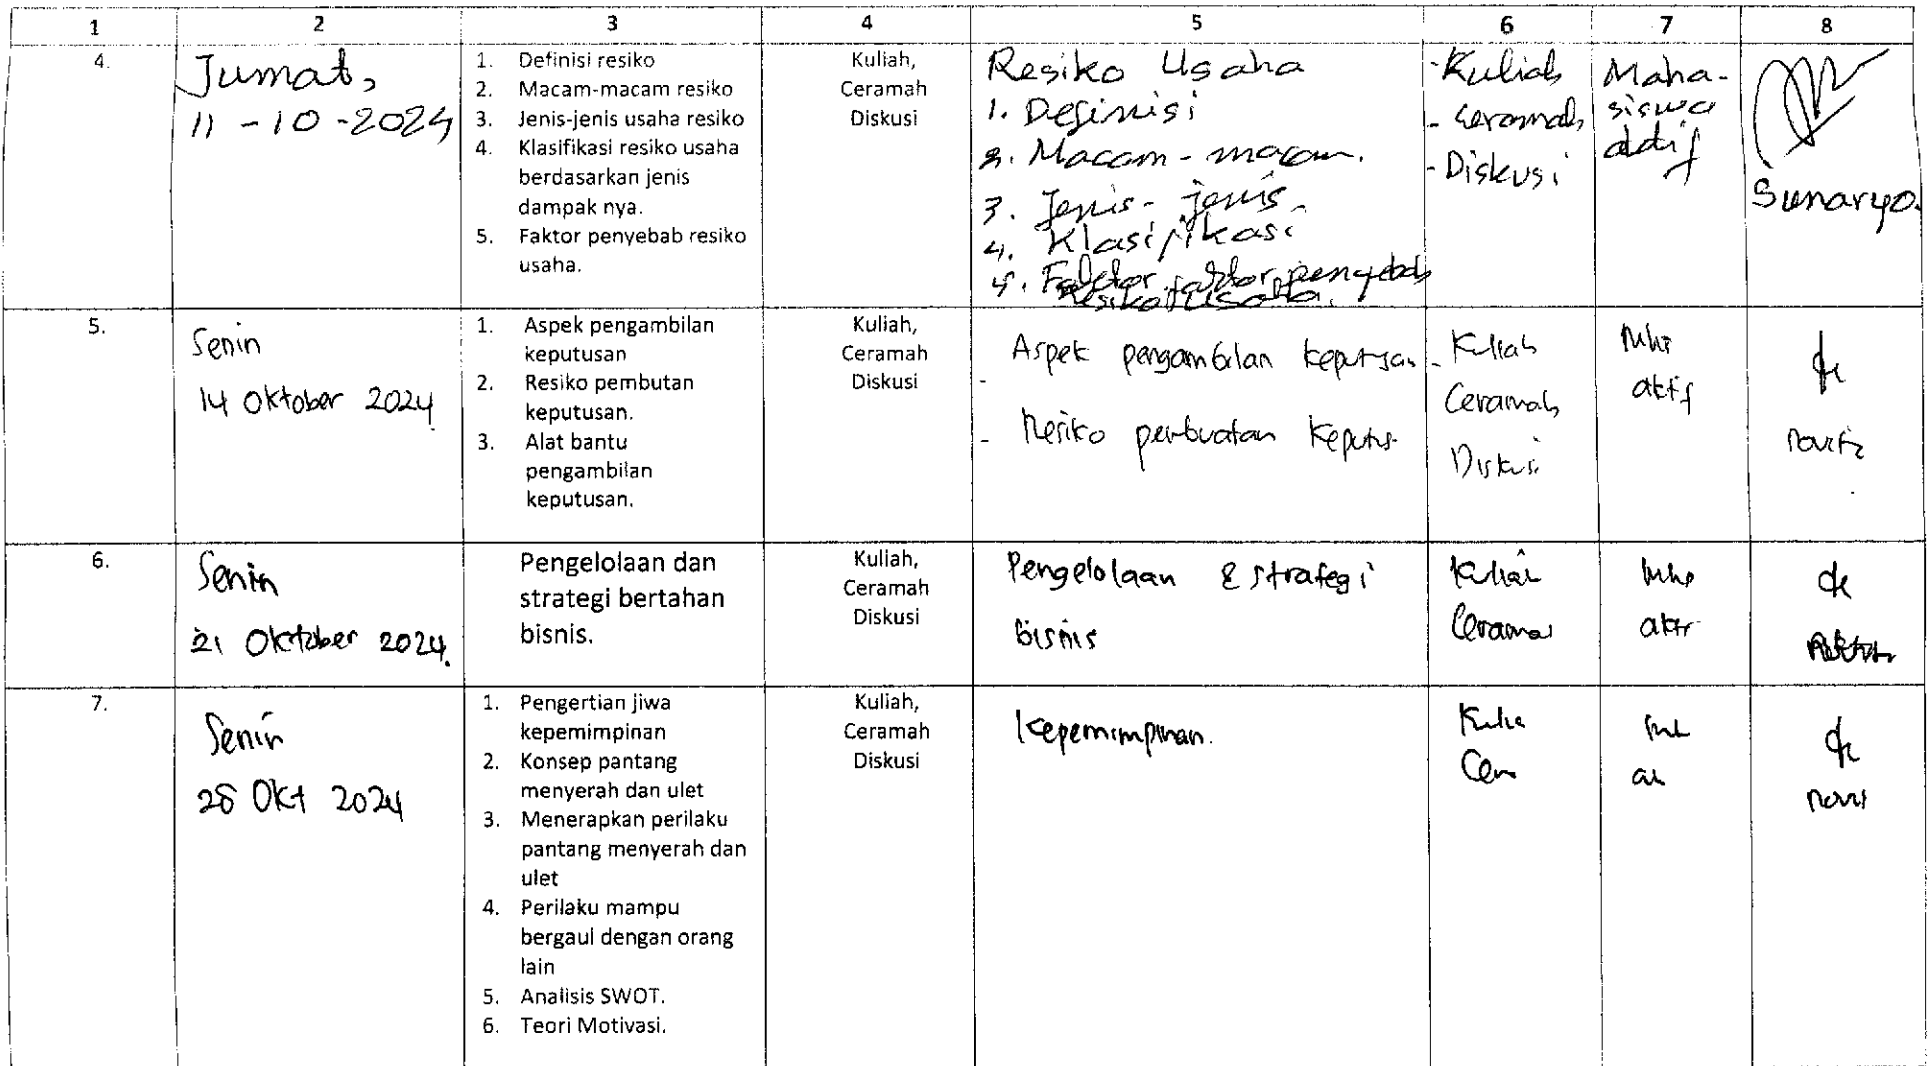 1 2 3 4 5 6 7 8
4.
Jumat,
11 - 10 - 2024
1. Definisi resiko
2. Macam-macam resiko
3. Jenis-jenis usaha resiko
4. Klasifikasi resiko usaha
berdasarkan jenis
dampak nya.
5. Faktor penyebab resiko
usaha.
Kuliah,
Ceramah
Diskusi
Resiko Usaha
1. Definisi
2. Macam-macam.
3. Jenis-jenis
4. Klasifikasi
5. Faktor faktor penyebab
Resiko usaha.
- Kuliah
- Ceramah
- Diskusi
Maha-
siswa
aktif
Sunaryo.
5.
Senin
14 Oktober 2024
1. Aspek pengambilan
keputusan
2. Resiko pembutan
keputusan.
3. Alat bantu
pengambilan
keputusan.
Kuliah,
Ceramah
Diskusi
- Aspek pengambilan keputusan
- Resiko pembuatan
- Kuliah
Ceramah
Diskusi
aktif
6.
Senin
21 Oktober 2024.
Pengelolaan dan
strategi bertahan
bisnis.
Kuliah,
Ceramah
Diskusi
Pengelolaan & strategi
bisnis
7.
Senin
28 Okt 2024
1. Pengertian jiwa
kepemimpinan
2. Konsep pantang
menyerah dan ulet
3. Menerapkan perilaku
pantang menyerah dan
ulet
4. Perilaku mampu
bergaul dengan orang
lain
5. Analisis SWOT.
6. Teori Motivasi.
Kuliah,
Ceramah
Diskusi
Kepemimpinan.